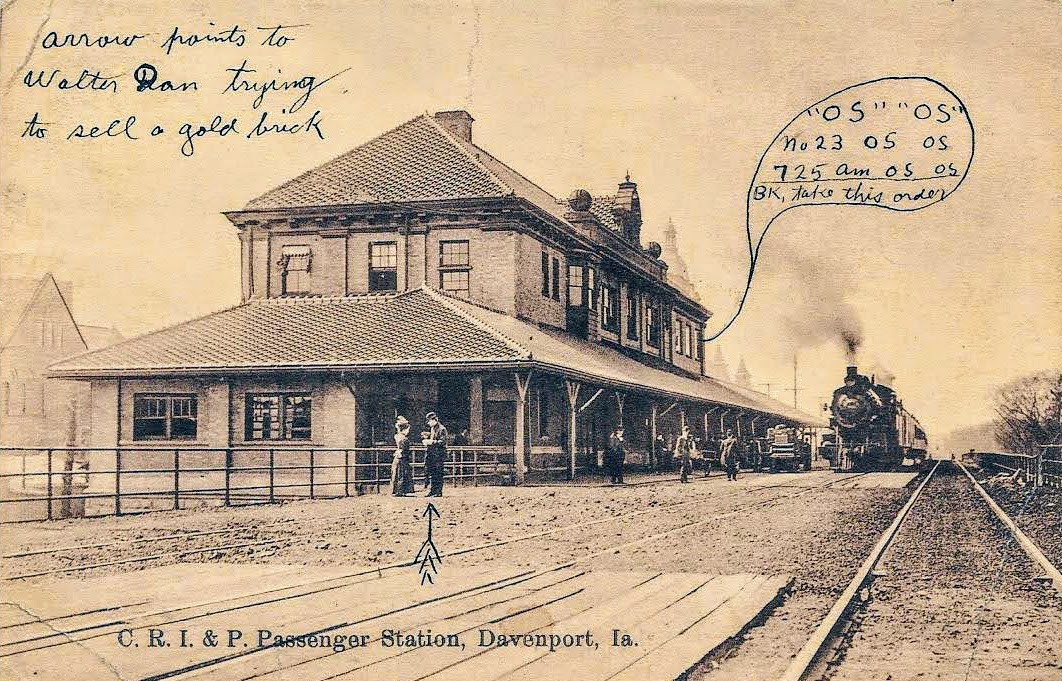 arrow points to
Walter Dan trying
to sell a gold brick
"OS" "OS"
No 23 OS OS
725 am OS OS
BK, take this order
C. R. I. & P. Passenger Station, Davenport, Ia.